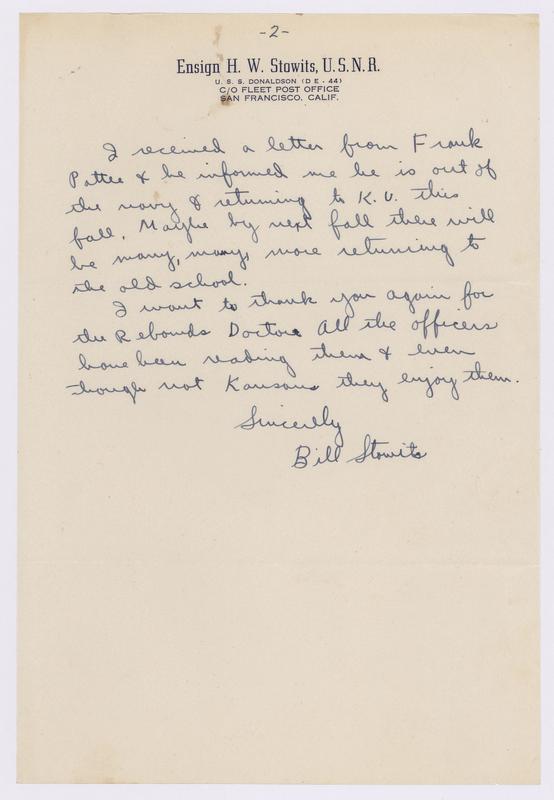 -2-
Ensign H. W. Stowits, U.S.N.R.
U. S. S. DONALDSON (DE-44)
C/O FLEET POST OFFICE
SAN FRANCISCO, CALIF.
I received a letter from Frank
Pattee & he informed me he is out of
the navy & returning to K.U. this
fall. Maybe by next fall there will
be many, many, more returning to
the old school.
I want to thank you again for
the Rebounds Doctor. All the officers
have been reading them & even
though not Kansans they enjoy them.
Sincerlly
Bill Stowits